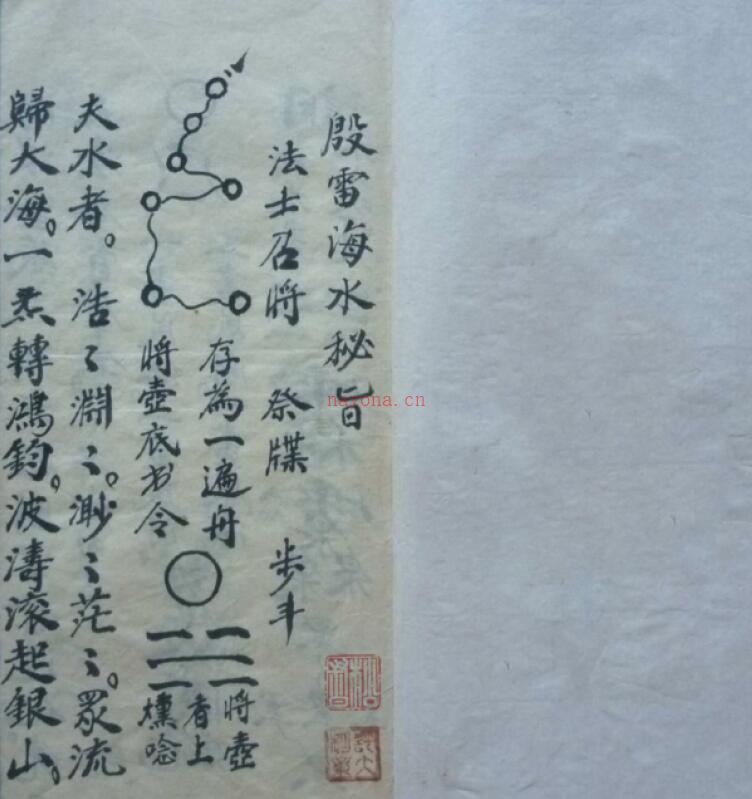 殷雷海水秘旨
法士召将 祭牒 步斗
存為一遍舟
将壺底书令
将壺
香上
燻唸
夫水者。浩〻淵〻。渺〻茫〻。眾流
歸大海。一炁轉鴻鈞。波濤滚起銀山。
nayona.cn